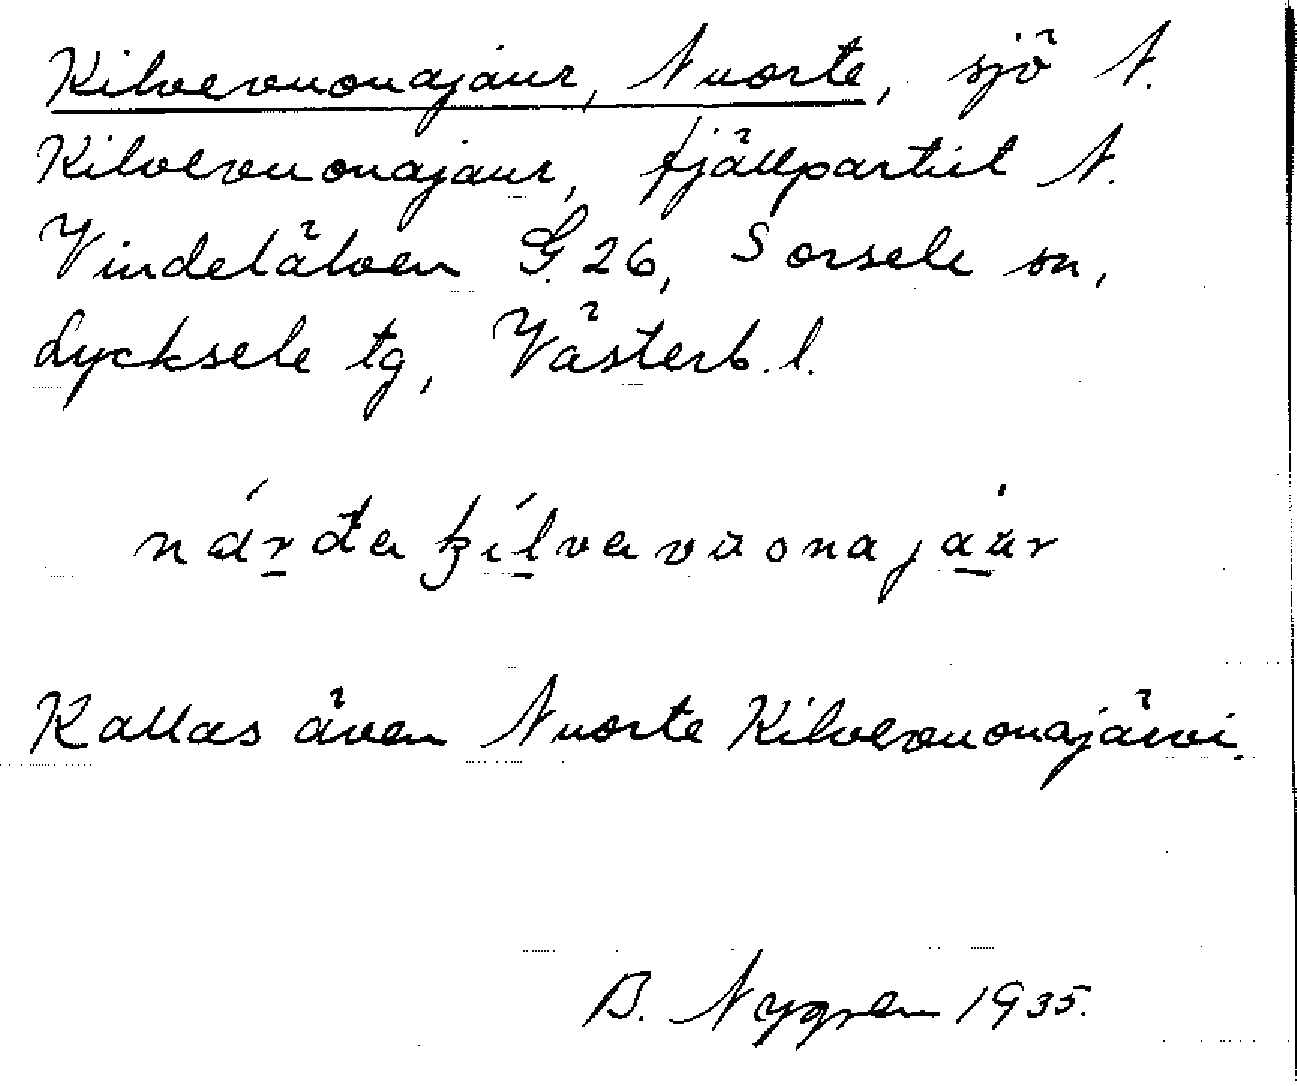 Kilvevuonajaur, Nuorte, sjö N.
Kilvevuonajaur, fjällpartiet N.
Vindelälven G. 26, Sorsele sn,
Lycksele tg, Västerb. l.
nárđa kílvavuonajáur
Kallas även Nuorte Kilvevuonajärvi.
B. Nygren 1935.